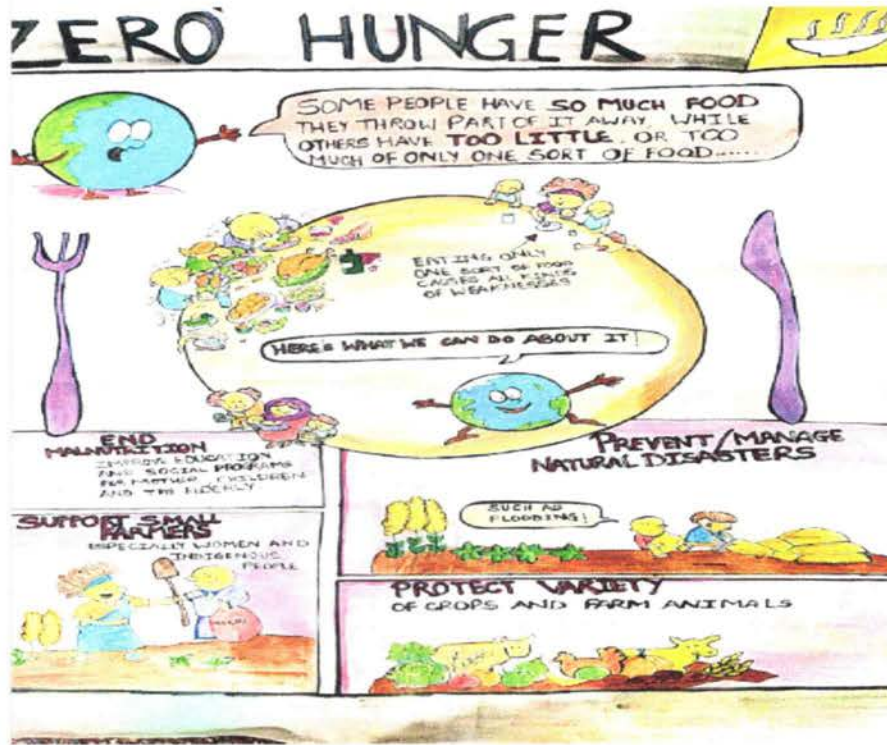 ZERO HUNGER
SOME PEOPLE HAVE SO MUCH FOOD
THEY THROW PART OF IT AWAY, WHILE
OTHERS HAVE TOO LITTLE, OR TOO
MUCH OF ONLY ONE SORT OF FOOD......
EATING ONLY
ONE SORT OF FOOD
CAUSES ALL KINDS
OF WEAKNESSES
HERE'S WHAT WE CAN DO ABOUT IT!
END
MALNUTRITION
IMPROVE EDUCATION
AND SOCIAL PROGRAMS
FOR MOTHER, CHILDREN
AND THE ELDERLY
SUPPORT SMALL
FARMERS
ESPECIALLY WOMEN AND
INDIGENOUS
PEOPLE
PREVENT/MANAGE
NATURAL DISASTERS
SUCH AS
FLOODING!
PROTECT VARIETY
OF CROPS AND FARM ANIMALS